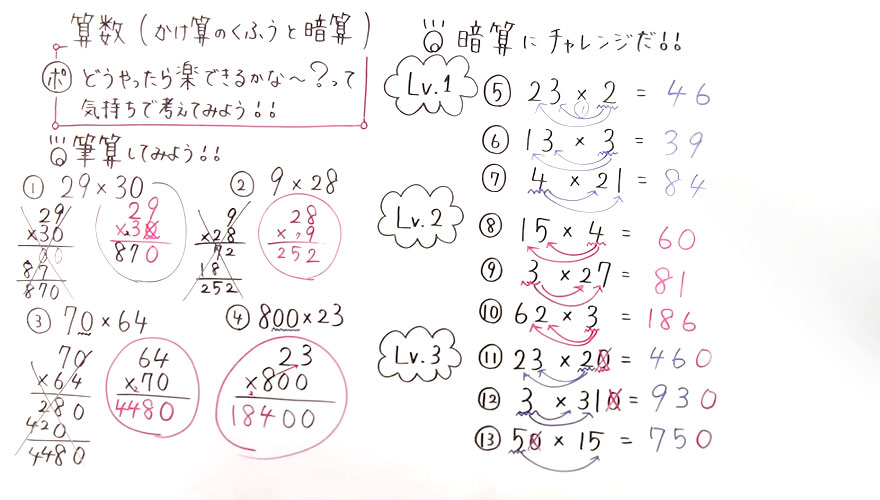 算数(かけ算のくふうと暗算)
ポ どうやったら楽できるかな〜?って
気持ちで考えてみよう!!
筆算してみよう!!
① 29×30
29
×30
00
87
870
29
×30
870
② 9×28
9
×28
72
18
252
28
×9
252
③ 70×64
70
×64
280
420
4480
64
×70
4480
④ 800×23
23
×800
18400
暗算にチャレンジだ!!
Lv.1
⑤ 23×2=46
⑥ 13×3=39
⑦ 4×21=84
Lv.2
⑧ 15×4=60
⑨ 3×27=81
⑩ 62×3=186
Lv.3
⑪ 23×20=460
⑫ 3×310=930
⑬ 50×15=750